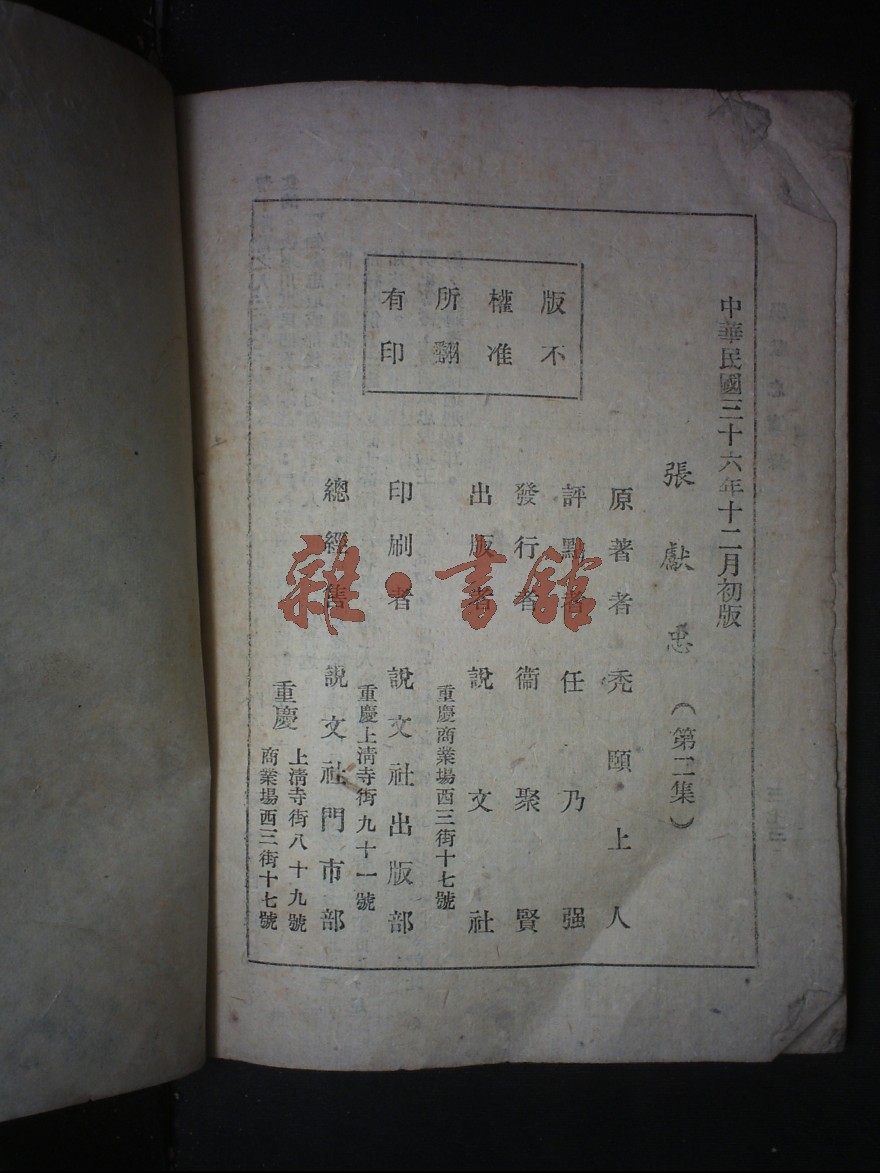 中華民國三十六年十二月初版
張獻忠（第二集）
原著者禿頤上人
評點者任乃强
發行者衞聚賢
出版者說文社
重慶商業場西三街十七號
印刷者說文社出版部
重慶上清寺街九十一號
總經售說文社門市部
重慶
上清寺街八十九號
商業場西三街十七號
版權所有
不准翻印
雜·書館